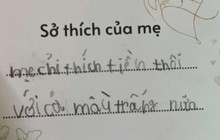 Sở thích của mẹ
mẹ chỉ thích tiền thôi
với cả mỗi tháng nữa